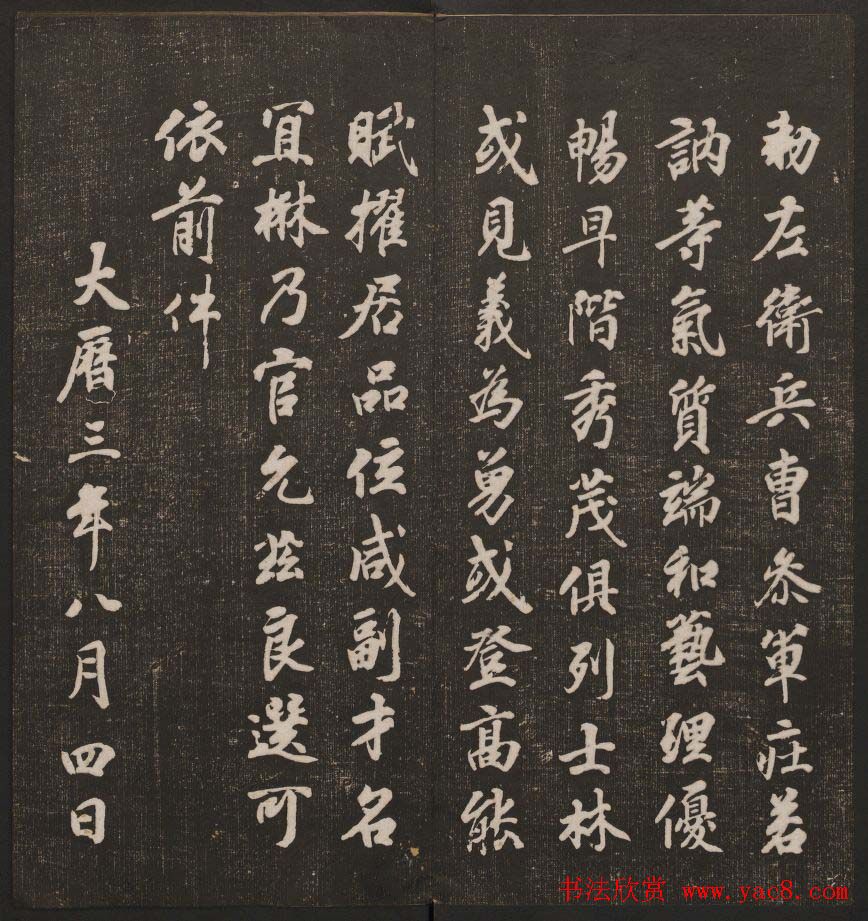 勅左衛兵曹叅軍疰若
訥等氣質端和藝理優
暢早階秀茂俱列士林
或見義為勇或登高能
賦擢居品位咸副才名
冝楙乃官允茲良選可
依前件
大曆三年八月四日
书法欣赏 www.yac8.com